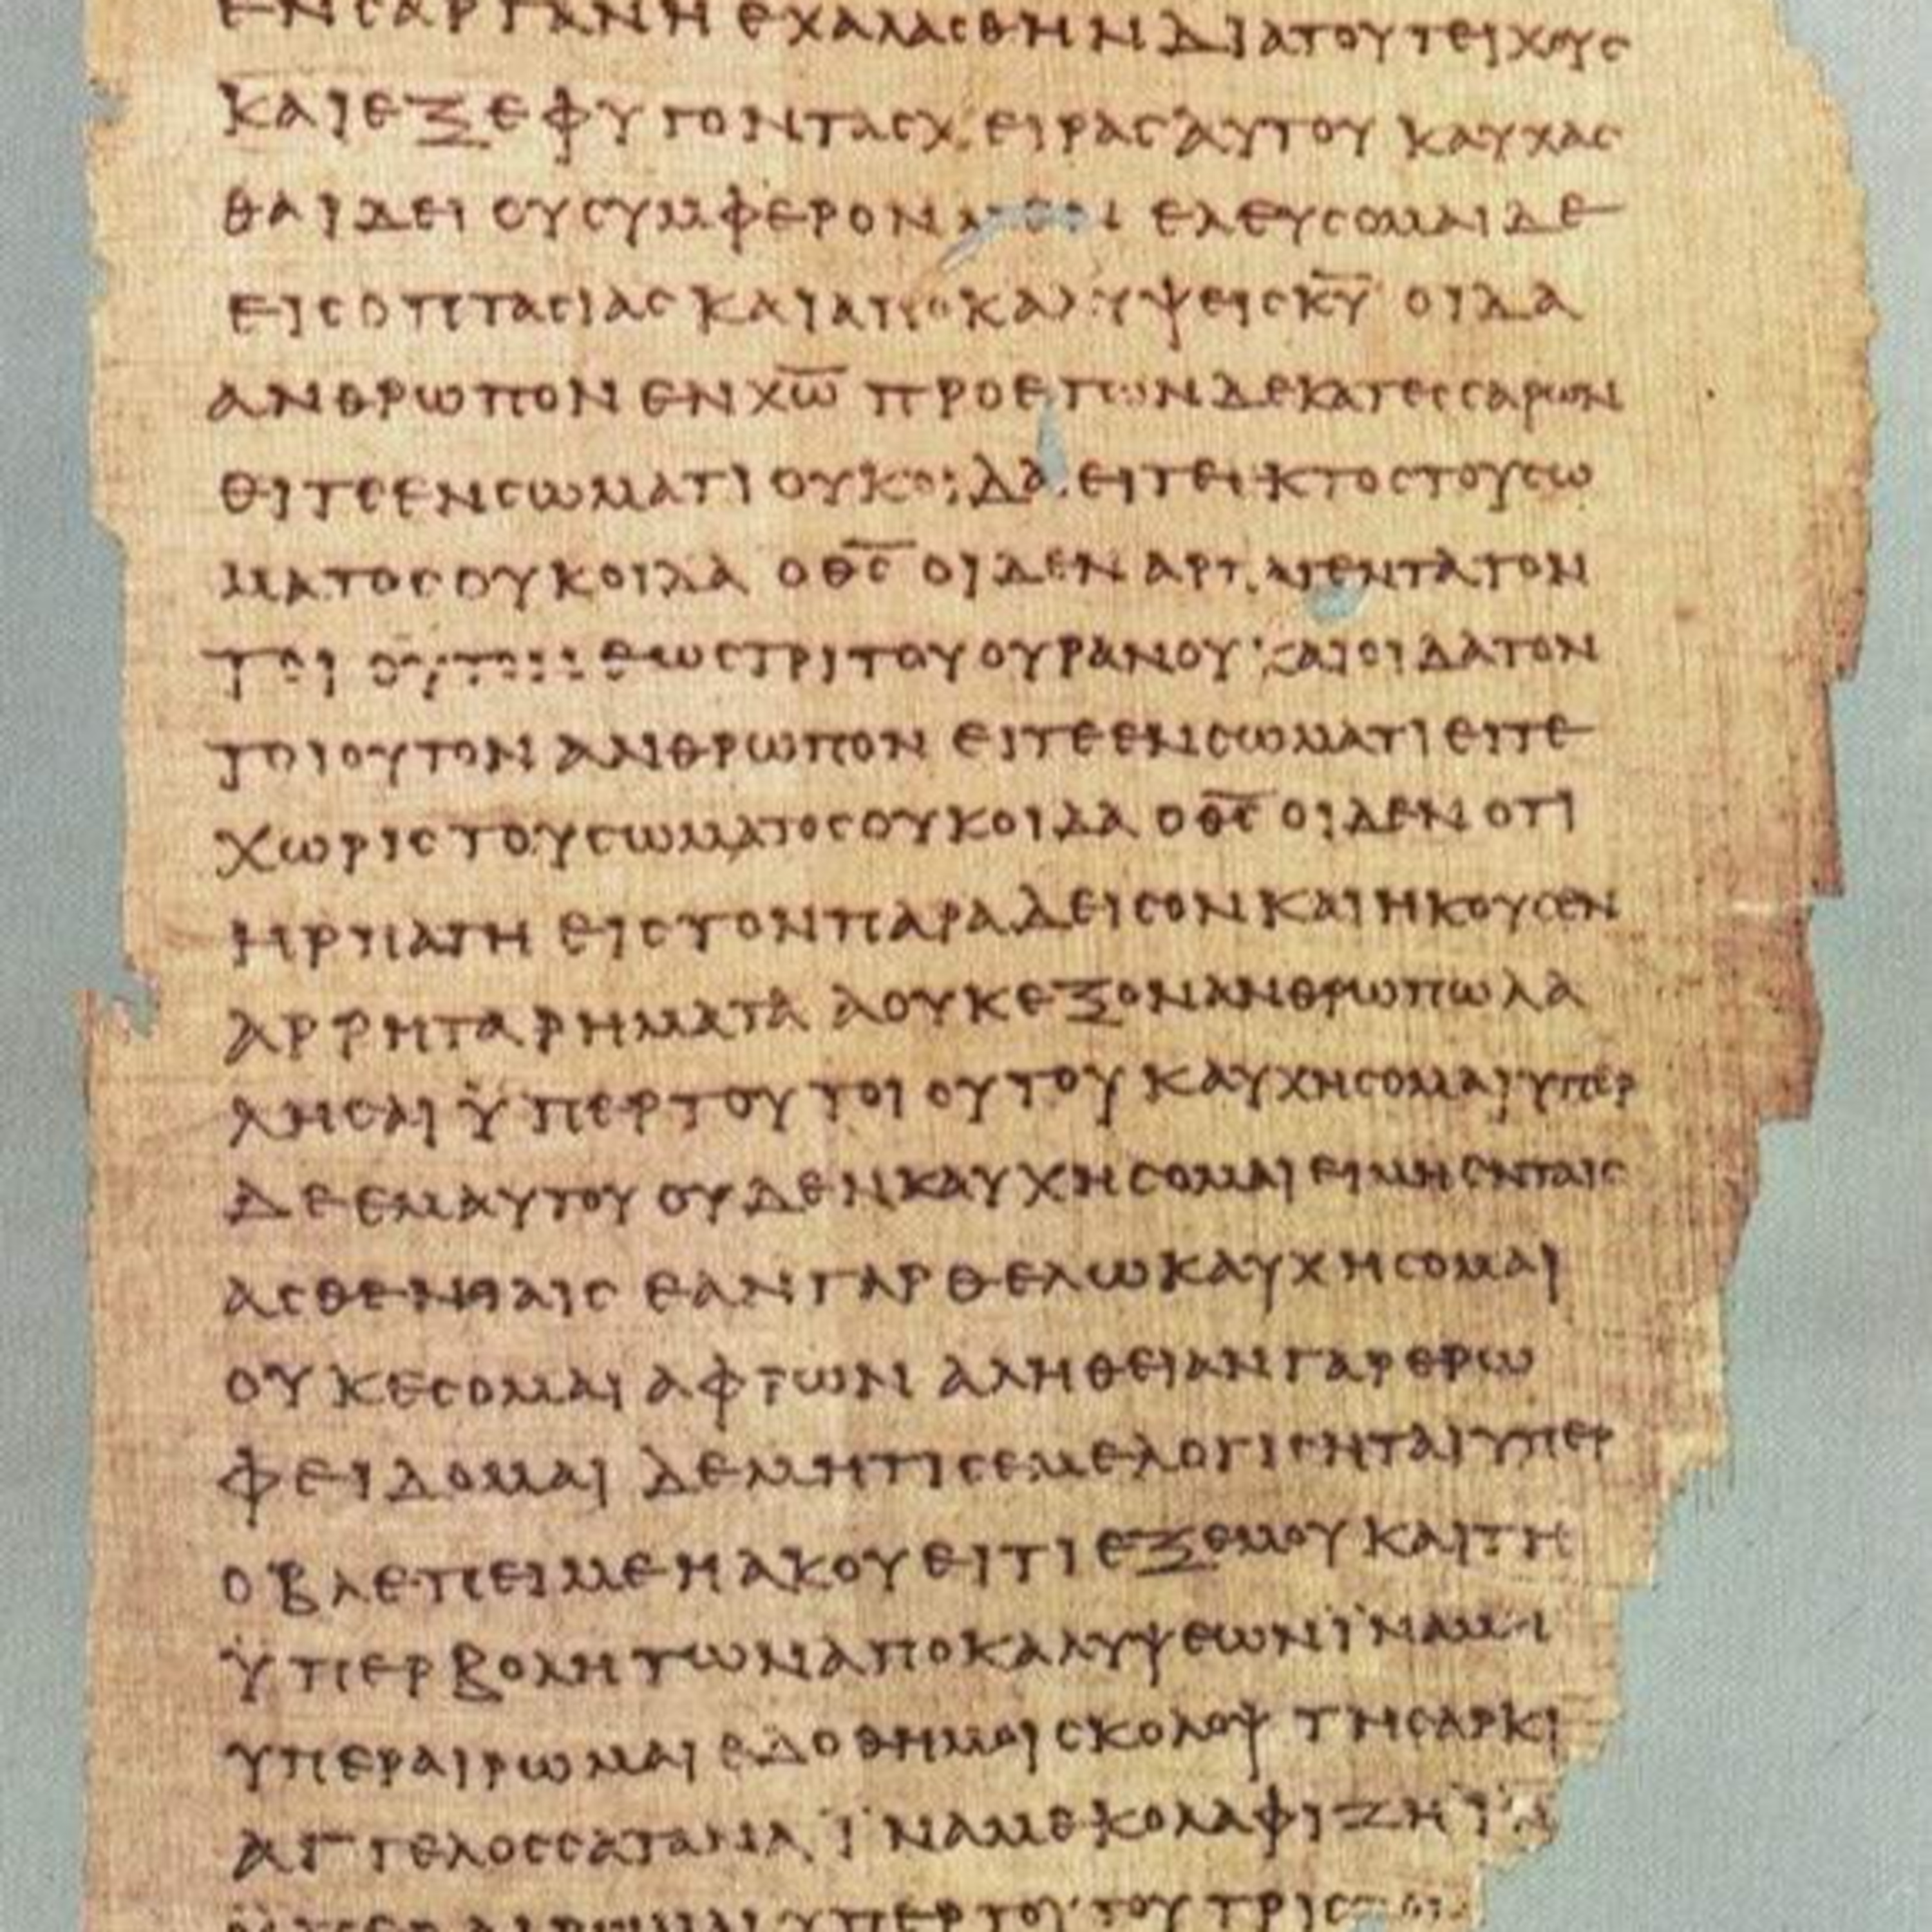 ΕΝ ΣΑΡΓΑΝΗ ΕΧΑΛΑΣΘΗΝ ΔΙΑ ΤΟΥ ΤΕΙΧΟΥΣ
ΚΑΙ ΕΞΕΦΥΓΟΝ ΤΑΣ ΧΕΙΡΑΣ ΑΥΤΟΥ ΚΑΥΧΑΣ
ΘΑΙ ΔΕΙ ΟΥ ΣΥΜΦΕΡΟΝ ΕΛΕΥΣΟΜΑΙ ΔΕ
ΕΙΣ ΟΠΤΑΣΙΑΣ ΚΑΙ ΑΠΟΚΑΛΥΨΕΙΣ Κ̅Υ̅ ΟΙΔΑ
ΑΝΘΡΩΠΟΝ ΕΝ Χ̅Ω̅ ΠΡΟ ΕΤΩΝ ΔΕΚΑΤΕΣΣΑΡΩΝ
ΕΙΤΕ ΕΝ ΣΩΜΑΤΙ ΟΥΚ ΟΙΔΑ ΕΙΤΕ ΕΚΤΟΣ ΤΟΥ ΣΩ
ΜΑΤΟΣ ΟΥΚ ΟΙΔΑ Ο Θ̅Σ̅ ΟΙΔΕΝ ΑΡΠΑΓΕΝΤΑ ΤΟΝ
ΤΟΙΟΥΤΟΝ ΕΩΣ ΤΡΙΤΟΥ ΟΥΡΑΝΟΥ ΚΑΙ ΟΙΔΑ ΤΟΝ
ΤΟΙΟΥΤΟΝ ΑΝΘΡΩΠΟΝ ΕΙΤΕ ΕΝ ΣΩΜΑΤΙ ΕΙΤΕ
ΧΩΡΙΣ ΤΟΥ ΣΩΜΑΤΟΣ ΟΥΚ ΟΙΔΑ Ο Θ̅Σ̅ ΟΙΔΕΝ ΟΤΙ
ΗΡΠΑΓΗ ΕΙΣ ΤΟΝ ΠΑΡΑΔΕΙΣΟΝ ΚΑΙ ΗΚΟΥΣΕΝ
ΑΡΡΗΤΑ ΡΗΜΑΤΑ Α ΟΥΚ ΕΞΟΝ ΑΝΘΡΩΠΩ ΛΑ
ΛΗΣΑΙ ΫΠΕΡ ΤΟΥ ΤΟΙΟΥΤΟΥ ΚΑΥΧΗΣΟΜΑΙ ΥΠΕΡ
ΔΕ ΕΜΑΥΤΟΥ ΟΥΔΕΝ ΚΑΥΧΗΣΟΜΑΙ ΕΙ ΜΗ ΕΝ ΤΑΙΣ
ΑΣΘΕΝΕΙΑΙΣ ΕΑΝ ΓΑΡ ΘΕΛΩ ΚΑΥΧΗΣΟΜΑΙ
ΟΥΚ ΕΣΟΜΑΙ ΑΦΡΩΝ ΑΛΗΘΕΙΑΝ ΓΑΡ ΕΡΩ
ΦΕΙΔΟΜΑΙ ΔΕ ΜΗ ΤΙΣ ΕΜΕ ΛΟΓΙΣΗΤΑΙ ΥΠΕΡ
Ο ΒΛΕΠΕΙ ΜΕ Η ΑΚΟΥΕΙ ΤΙ ΕΞ ΕΜΟΥ ΚΑΙ ΤΗ
ΫΠΕΡΒΟΛΗ ΤΩΝ ΑΠΟΚΑΛΥΨΕΩΝ ΪΝΑ ΜΗ
ΥΠΕΡΑΙΡΩΜΑΙ ΕΔΟΘΗ ΜΟΙ ΣΚΟΛΟΨ ΤΗ ΣΑΡΚΙ
ΑΓΓΕΛΟΣ ΣΑΤΑΝΑ ΪΝΑ ΜΕ ΚΟΛΑΦΙΖΗ ΪΝΑ
ΜΗ ΥΠΕΡΑΙΡΩΜΑΙ ΥΠΕΡ ΤΟΥΤΟΥ ΤΡΙΣ